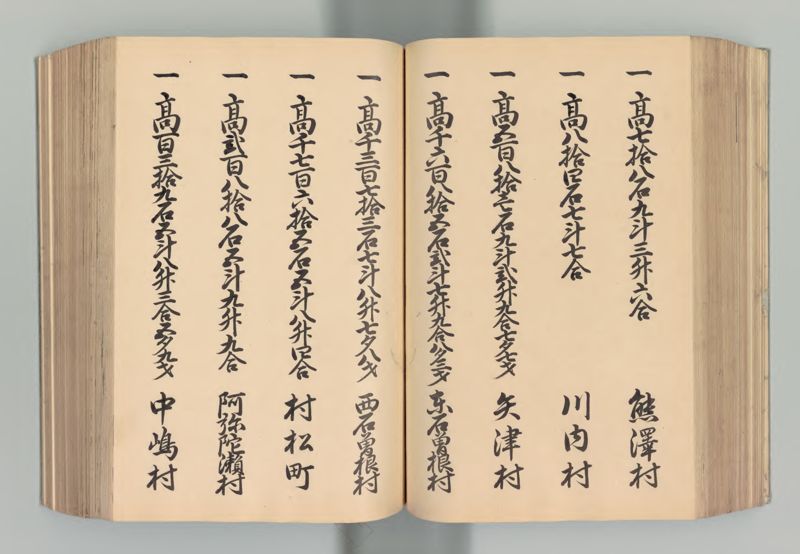 一高七拾八石九斗三升六合 熊澤村
一高八拾四石七斗七合 川内村
一高五百八拾壱石九斗弐升九合七夕七才 矢津村
一高千六百八拾五石弐斗七升九合八夕三才 東石曽根村
一高千三百七拾三石七斗八升七夕八才 西石曽根村
一高千七百六拾五石五斗八升四合 村松町
一高弐百八拾八石五斗九升九合 阿弥陀瀬村
一高百三拾九石五斗八升三合五夕九才 中嶋村